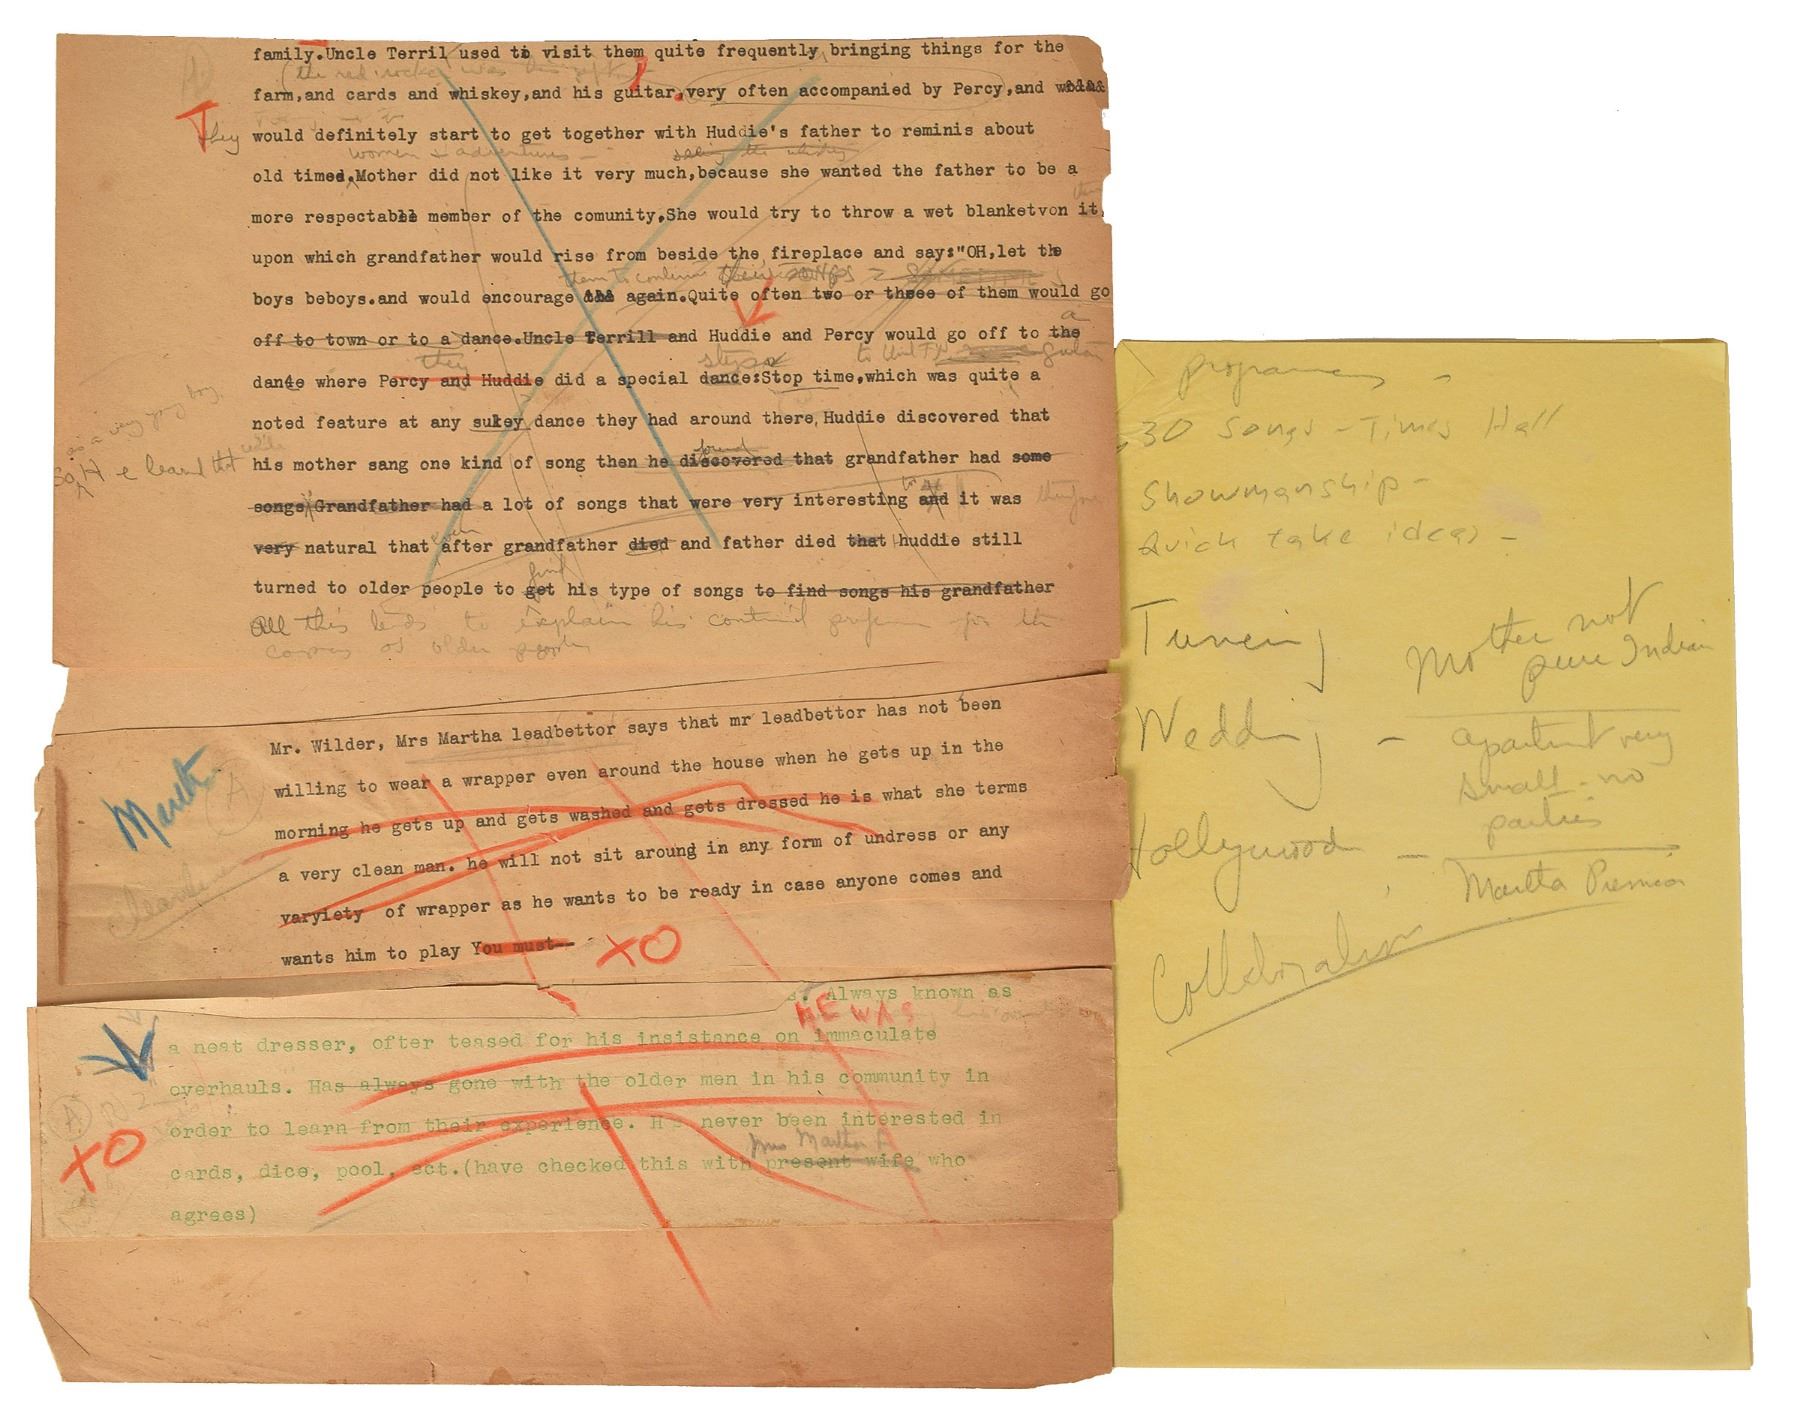 family.Uncle Terril used to visit them quite frequently bringing things for the
(the red rocker was
farm,and cards and whiskey,and his guitar,very often accompanied by Percy,and
They would definitely start to get together with Huddie's father to reminis about
women & adventures - the whiskey
old timed.Mother did not like it very much,because she wanted the father to be a
more respectable member of the comunity.She would try to throw a wet blanket on it
upon which grandfather would rise from beside the fireplace and say:"OH,let the
them to continue their songs
boys beboys.and would encourage again.Quite often two or three of them would go
a
off to town or to a dance.Uncle Terrill and Huddie and Percy would go off to the
they steps
dance where Percy and Huddie did a special dance:Stop time,which was quite a
as a very young boy,
noted feature at any sukey dance they had around there,Huddie discovered that
So He learned that while
found
his mother sang one kind of song then he discovered that grandfather had some
to
songs Grandfather had a lot of songs that were very interesting and it was
even
very natural that after grandfather died and father died that huddie still
find
turned to older people to get his type of songs to find songs his grandfather
All this leads to explain his for the
of older people
Mr. Wilder, Mrs Martha leadbettor says that mr leadbettor has not been
willing to wear a wrapper even around the house when he gets up in the
Martha
A
morning he gets up and gets washed and gets dressed he is what she terms
a very clean man. he will not sit aroung in any form of undress or any
varyiety of wrapper as he wants to be ready in case anyone comes and
wants him to play You must--
XO
s. Always known as
HE WAS
a neat dresser, ofter teased for his insistance on immaculate
overhauls. Has always gone with the older men in his community in
A
order to learn from their experience. He never been interested in
XO
Mrs Martha
cards, dice, pool, ect.(have checked this with present wife who
agrees)
programs -
30 Songs - Times Hall
Showmanship -
Quick take ideas -
Tuneing
Mother not
pure Indian
Wedding -
apartment very
small - no
parties
Hollywood -
Martha
Collaboration